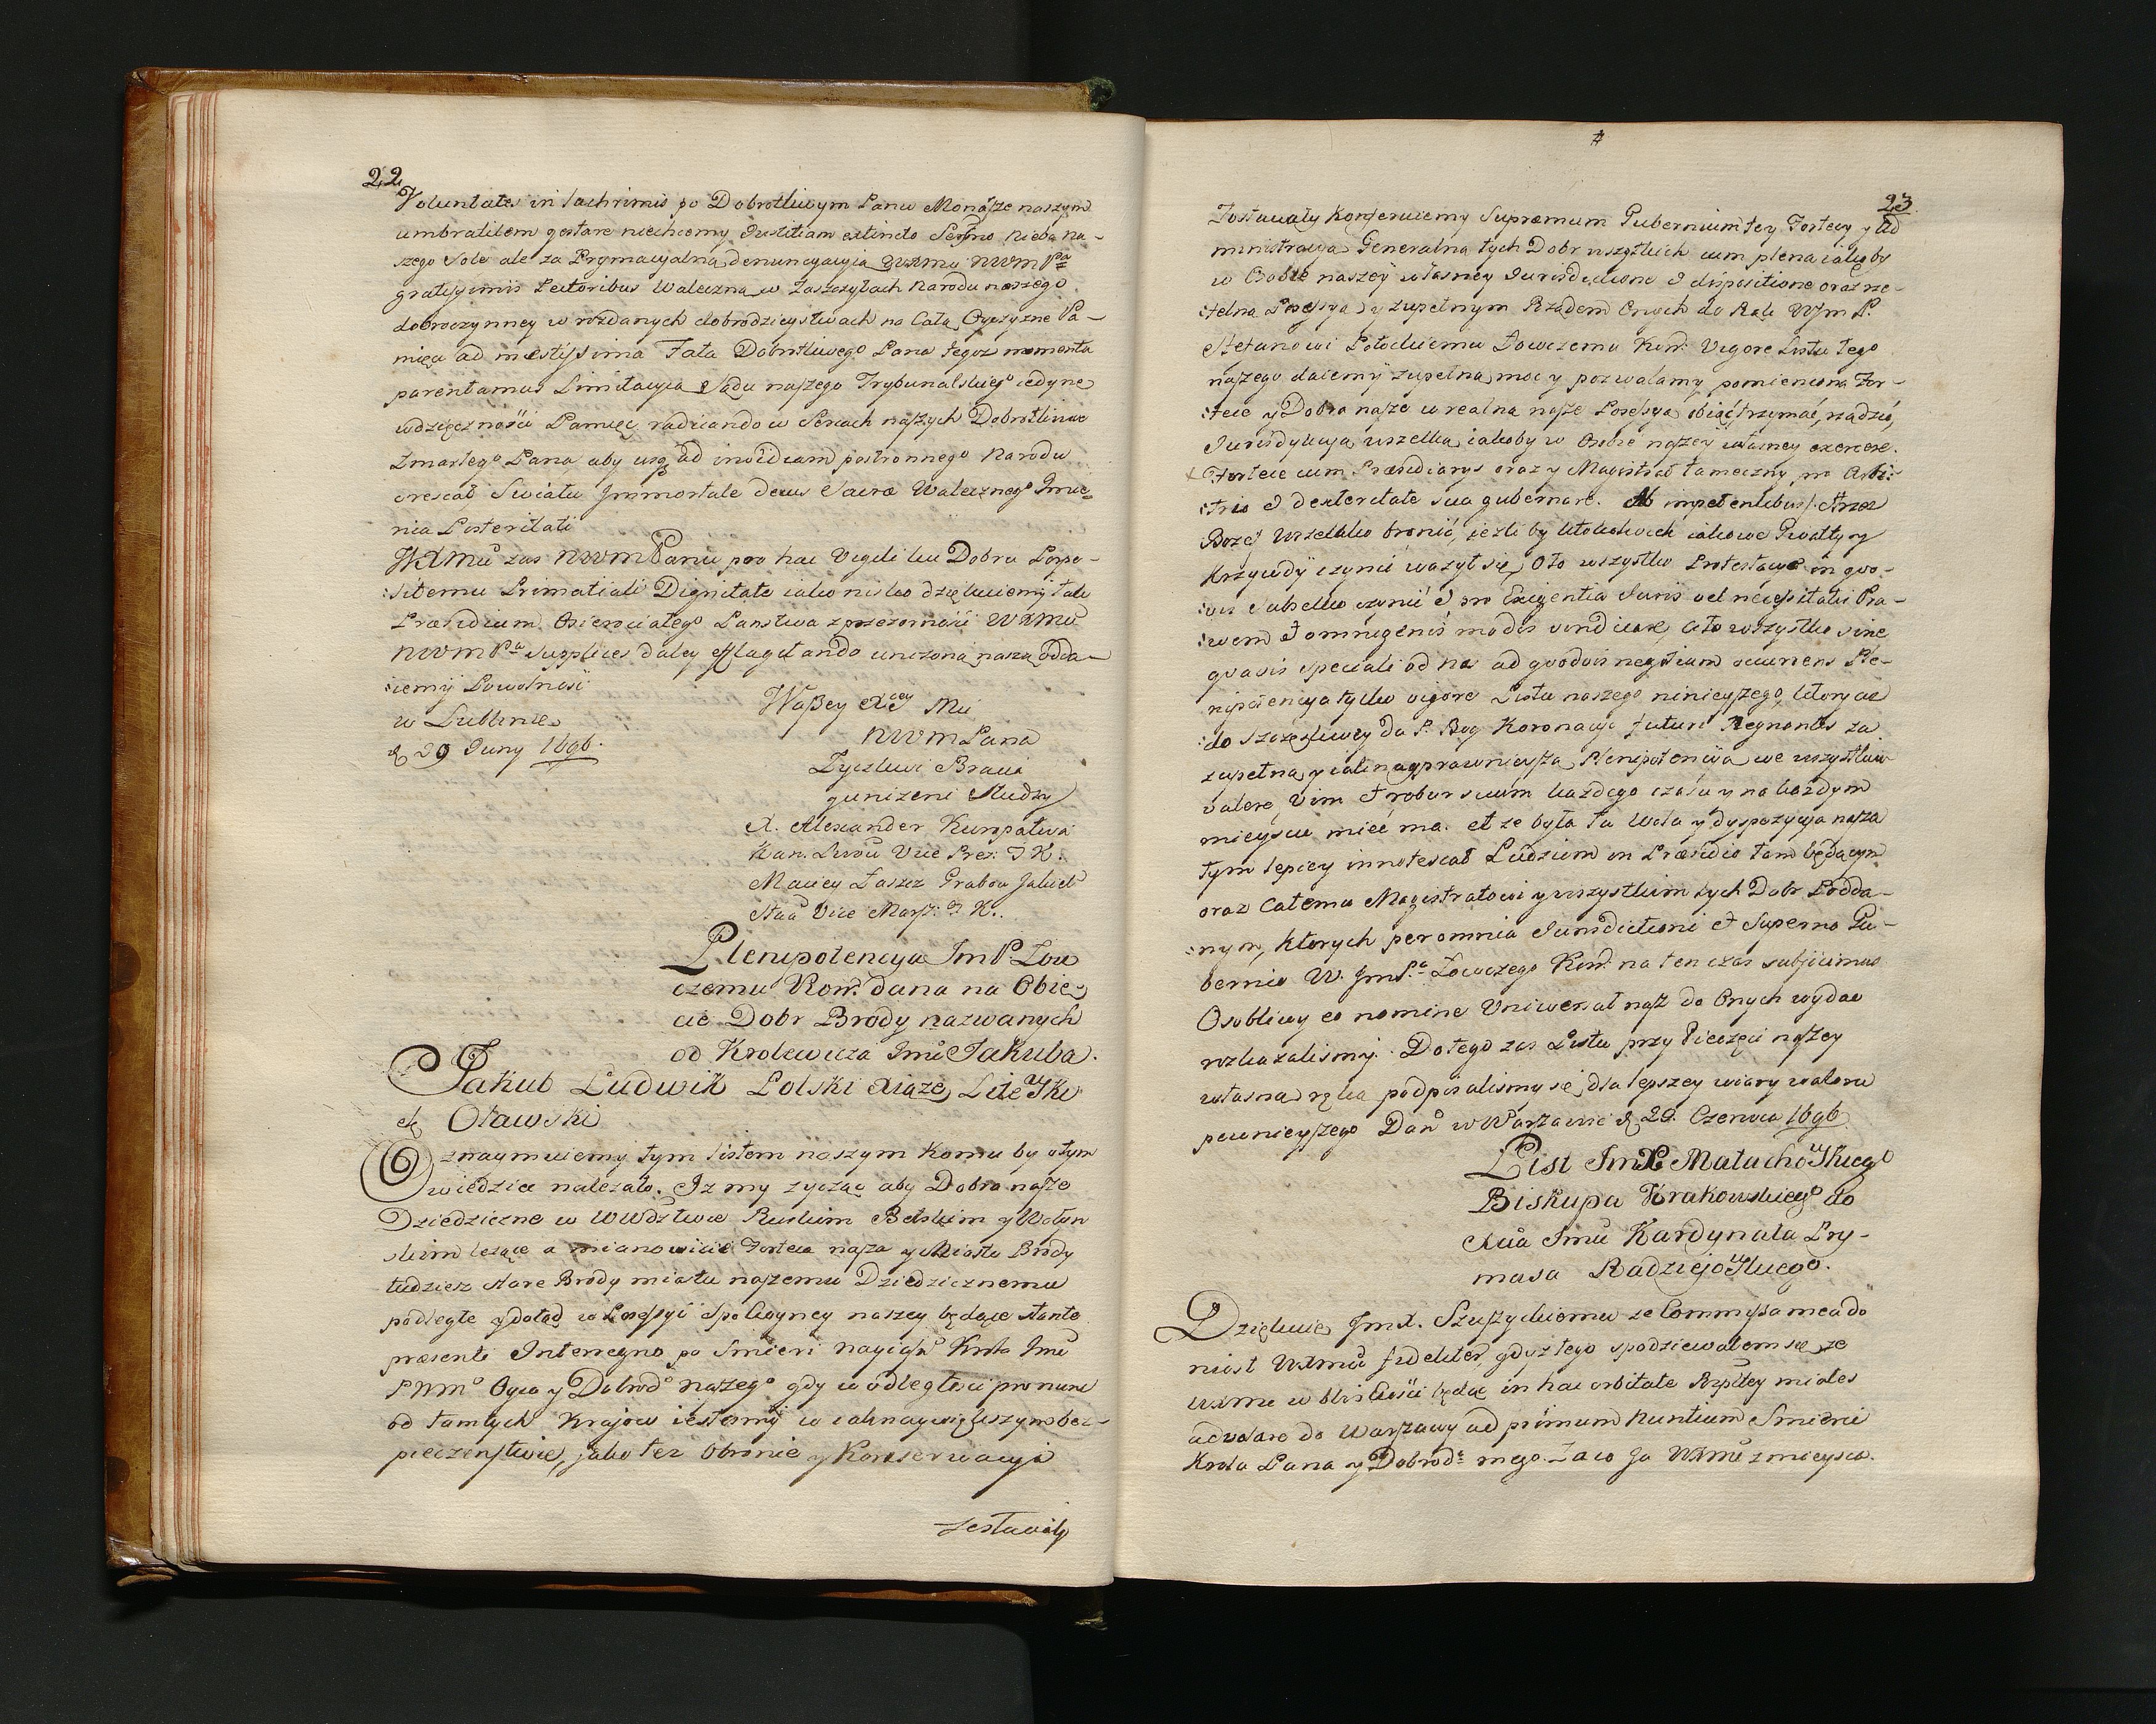 22
Voluntate in lachrimis po Dobrotliwym Panu Monarsze naszym
umbratilem gestare niechcemy Justitiam extincto Seren̄no nieba na-
szego Sole ale za Prymacyalną denuncyacyią WXMci NWMPa
gratissimis Lectoribus Waleczną w Zaszczytach Narodu naszego
dobroczynney w rozdanych dobrodzieystwach na Całą Oyczyznę Pa-
mięci ad mœstissima Fata Dobrotliwego Pana tegoż momenta
parentamus Limitacyią Sądu naszego Trybunalskiego iedynę
wdzięczności Pamięć radicando w Sercach naszych Dobrotliwie
Zmarłego Pana aby usq ad invidiam postronnego Narodu
crescat Swiatu Immortale decus Sacræ Walecznego Imie-
nia Posteritati
WXMci zas NWMPanu pro hac Vigili ku Dobru Pospo-
:litemu Primatiali Dignitate iako nisko dziękuiemy tak
Præsidium Osierociałego Panstwa z przezorności WXMci
NWMPa supplices daley efflagitando unizoną naszą odda-
:iemy Powolnosc
w Lublinie
d 29 Juny 1696.
Waszey Xcey Mci
NWMPana
Zyczliwi Bracia
y unizeni Słudzy
X. Alexander Kuropatwa
Kan. Lwow Vice Prez: T K.
Maciey Łaszcz Grabow Jakiel
Staa Vice Marsz: T K.
Plenipotencya ImP Łow
czemu Kor. dana na Obie-
cie Dobr Brody nazwanych
od Krolewica Imci Jakuba.
Jakub Ludwik Polski Xiąze Litewski
et Oławski
Oznaymuiemy tym listem naszym Komu by o tym
wiedziec nalezało. Iz my zycząc aby Dobra nasze
Dziedziczne w Wwdztwie Ruskim Bełskim y Wołyn
skim leżące a mianowicie Forteca nasza y Miasto Brody
tudziesz stare Brody miastu naszemu Dziedzicznemu
podległe y dotąd w Possessyi Spokoyney naszey będące stante
præsenti Interregno po Smierci Nayias̄ Krola Imci
PNM° Oyca y Dobrod° naszego gdy w odległosci pro nunc
od tamtych Kraiow iestesmy w iaknaywiększym bez-
pieczenstwie, jako tez Obronie y Konserwacyi
zostawały
#
23
Zostawały konferuiemy Supremum Gubernium tey Fortecy y Ad
ministracyą Generalną tych Dobr wszystkich cum plena iakoby
w Osobie naszey własney Jurisdictione et dispositione oraz rze-
:telną Possessyą y zupełnym Rządem Onych do Rąk WJm P.
Stefanowi Potockiemu Łowczemu Kor. Vigore Listu tego
naszego daiemy zupełną moc y pozwalamy pomienioną For-
:tece y Dobra nasze w realną nasze Possessyą obiąć, trzymać, rządzić,
Jurisdykcyą wszelką iakoby w Osobie naszey własney exercere.
Fortece cum Præsidiarys oraz y Magistrat tameczny pro Arbi-
:trio et dexteritate sua gubernare. Ab impetentibus strzez
Boze wszelko bronić, iezli by ktokolwiek iakowe Gwałty y
Krzywdy czynić ważył się, Oto wszystko Protestacye in quo-
:vis Subsellio czynić et pro Exigentia Juris vel necessitatis Pra-
:wem et omnigenis modis vindicare, a to wszystko sine
quavis speciali od nas ad quodvis negotium occurrens Ple-
nipotencyą tylko vigore Listu naszego ninieyszego, ktory az
:do szczęsliwey da P. Bog Koronacyi futuri Regnantis za
zupełną y iaknayprawnieyszą Plenipotencyią we wszystkim
valore, vim et robur suum każdego czasu y na kazdym
mieyscu mieć ma. et ze była ta wola y dyspozycya nasza
tym lepiey innotescat Ludziom in Præsidio tam będącym
oraz Całemu Magistratowi y wszystkim tych Dobr Podda-
:nym, ktorych per omnia Jurisdictioni et Supremo Gu-
bernio W. JmPa Łowczego Kor. na ten czas subjicimus
Osobliwy eo nomine Uniwersał nasz do Onych wydac
rozkazalismy. Do tego zas Listu przy Pieczęci naszey
własną ręką podpisalismy się dla lepszey wiary waloru
pewnieyszego Dan w Warszawie d 29. Czerwca 1696
List ImX Małachowskiego
Biskupa Krakowskiego do
Xcia Imci Kardynała Pry-
masa Radziejowskiego.
Dziękuię JmX. Szuszyckiemu ze Commissa mea do
niosł WXMci fideliter, gdyz tego spodziewałem się, ze
WXMc w bliskosci będąc in hac orbitate Rzpltey miałes
advolare do Warszawy ad primum Nuntium Smierci
Krola Pana y Dobrod: mego. Za co Ja WXMci z mieysca.